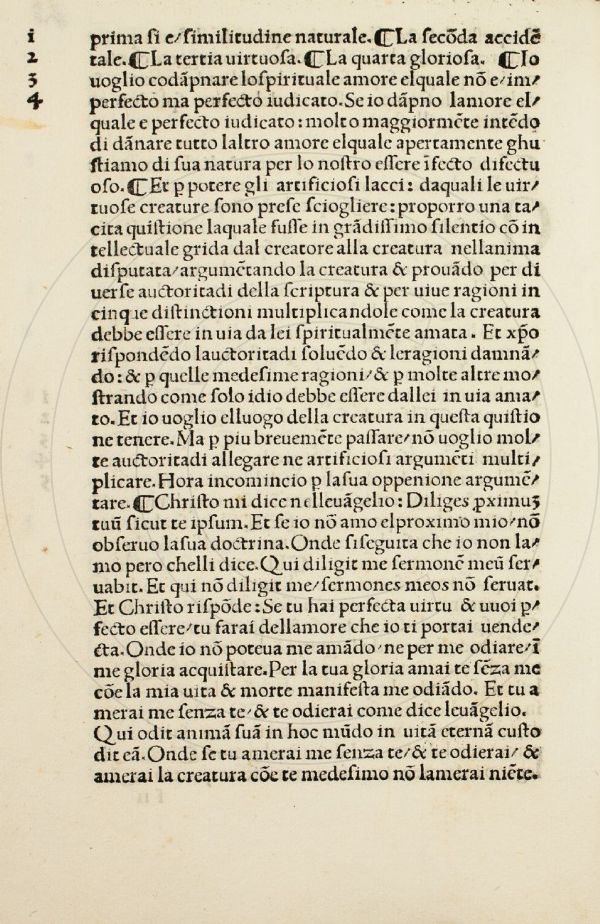 1 prima si e/ſimilitudine naturale.⸿La ſecōda accidē
2 tale.⸿La tertia uirtuoſa.⸿La quarta glorioſa. ⸿Io
3 uoglio codāpnare loſpirituale amore elquale nō e/im/
4 perfecto ma perfecto iudicato.Se io dāpno lamore el/
quale e perfecto iudicato:molto maggiormēte intēdo
di dānare tutto laltro amore elquale apertamente ghu
ſtiamo di ſua natura per lo noſtro eſſere īfecto difectu
oſo.⸿Et ꝑ potere gli artificioſi lacci: daquali le uir/
tuoſe creature ſono preſe ſciogliere: proporro una ta/
cita quiſtione laquale fuſſe in grādiſſimo ſilentio cō in
tellectuale grida dal creatore alla creatura nellanima
diſputata/argumētando la creatura & prouādo per di
uerſe auctoritadi della ſcriptura & per uiue ragioni in
cinque diſtinctioni multiplicandole come la creatura
debbe eſſere in uia da lei ſpiritualmēte amata. Et xp̄o
riſpondēdo lauctoritadi ſoluēdo & leragioni damnā/
do: & ꝑ quelle medeſime ragioni/& ꝑ molte altre mo/
ſtrando come ſolo idio debbe eſſere dallei in uia ama/
to.Et io uoglio elluogo della creatura in queſta quiſtio
ne tenere.Ma ꝑ piu breuemēte paſſare/nō uoglio mol/
te auctoritadi allegare ne artificioſi argumēti multi/
plicare.Hora incomincio ꝑ laſua oppenione argumē/
tare.⸿Chriſto mi dice nelleuāgelio: Diliges ꝓximuꝫ
tuū ſicut te ipſum.Et ſe io nō amo elproximo mio/nō
obſeruo laſua doctrina.Onde ſiſeguita che io non la/
mo pero chelli dice.Qui diligit me ſermonē meū ſer/
uabit. Et qui nō diligit me/ſermones meos nō ſeruat.
Et Chriſto riſpōde:Se tu hai perfecta uirtu & uuoi ꝑ/
fecto eſſere/tu farai dellamore che io ti portai uende/
cta.Onde io nō poteua me amādo/ne per me odiare/ī
me gloria acquiſtare.Per la tua gloria amai te ſēza me
cōe la mia uita & morte manifeſta me odiādo. Et tu a
merai me ſenza te/& te odierai come dice leuāgelio.
Qui odit animā ſuā in hoc mūdo in uitā eternā cuſto
dit eā.Onde ſe tu amerai me ſenza te/& te odierai/ &
amerai la creatura cōe te medeſimo nō lamerai niēte.